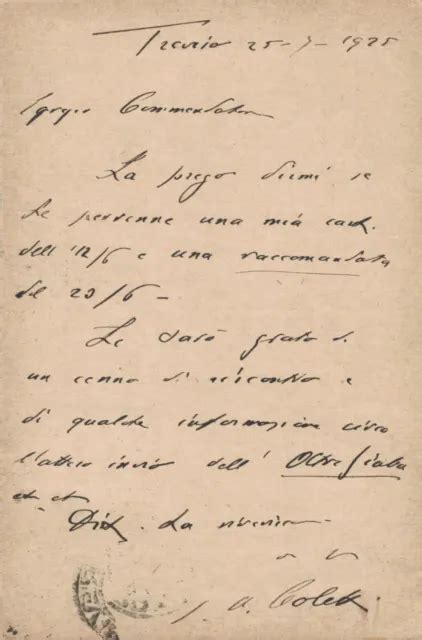 Treviso 25-7-1925
Egregio Commendatore
La prego dirmi se
Le pervenne una mia cart.
dell' 12/6 e una raccomandata
del 23/6 -
Le sarò grato di
un cenno di riscontro e
di qualche informazione circa
l'atteso invio dell' Oltre Giuba
et et
Dist. La riverisco